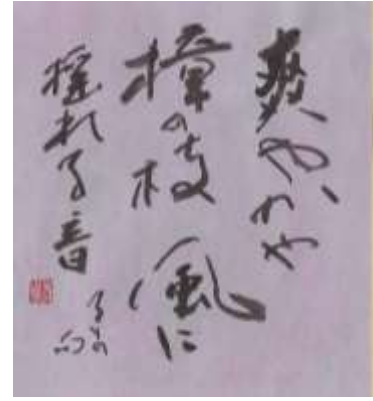 爽やかや
樟の枝風に
揺れる音